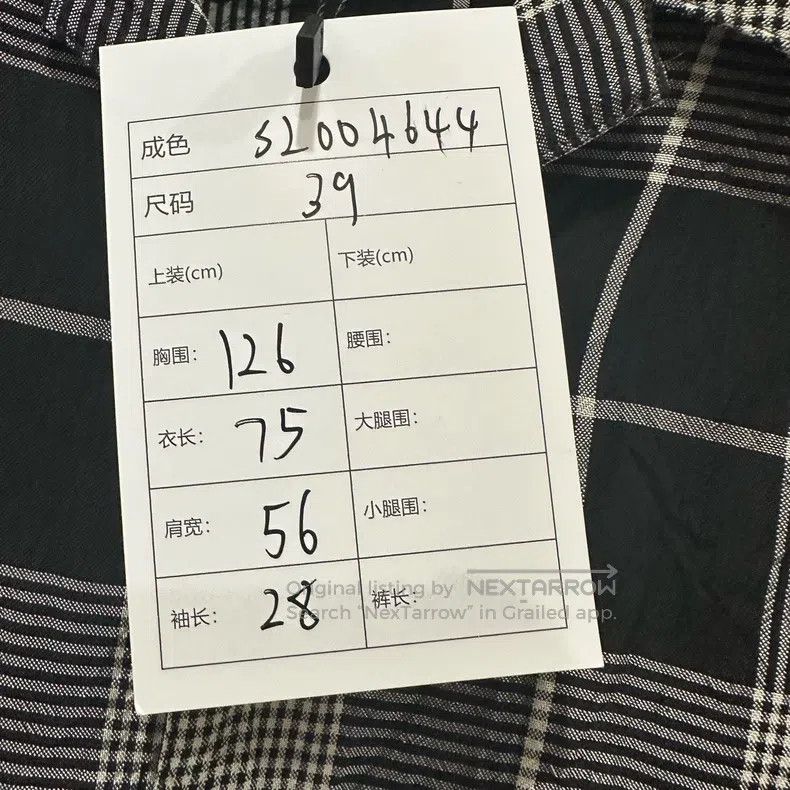 成色 SL004644
尺码 39
上装(cm) 下装(cm)
胸围: 126 腰围:
衣长: 75 大腿围:
肩宽: 56 小腿围:
袖长: 28 裤长:
Original listing by NEXTARROW
Search "NexTarrow" in Grailed app.